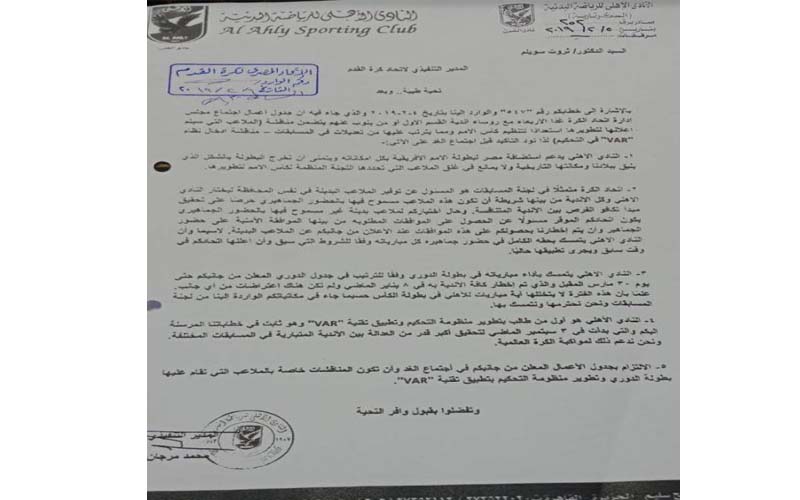 النادى الأهلى للرياضة البدنية
Al Ahly Sporting Club
النادى الأهلى للرياضة البدنية
صادر برقم ٢٥٢
بتاريخ ٢٠١٩/٢/٥
مرفقات
الاتحاد المصرى لكرة القدم
رقم الوارد
التاريخ
السيد الدكتور/ ثروت سويلم
المدير التنفيذي لاتحاد كرة القدم
تحية طيبة.. وبعد
بالاشارة الى خطابكم رقم "٥٤٧" والوارد الينا بتاريخ ٤-٢-٢٠١٩ والذي جاء فيه ان جدول أعمال اجتماع مجلس
ادارة اتحاد الكرة غدا الاربعاء مع روساء اندية القسم الاول او من ينوب عنهم يتضمن مناقشة (الملاعب التي سيتم
اعلانها لتطويرها استعدادا لتنظيم كاس الامم ومما يترتب عليها من تعديلات في المسابقات – مناقشة ادخال نظام
"VAR" في التحكيم) لذا نود التأكيد قبل اجتماع الغد على الاتي:-
١- النادي الاهلي يدعم استضافة مصر لبطولة الامم الأفريقية بكل امكاناته ويتمنى ان تخرج البطولة بالشكل الذي
يليق ببلادنا ومكانتها التاريخية ولا يمانع في غلق الملاعب التي تحددها اللجنة المنظمة لكاس الامم لتطويرها.
٢- اتحاد الكرة متمثلا في لجنة المسابقات هو المسئول عن توفير الملاعب البديلة في نفس المحافظة ليختار النادي
الاهلي وكل الاندية من بينها شريطة أن تكون هذه الملاعب مسموح فيها بالحضور الجماهيري حرصا على تحقيق
مبدأ تكافؤ الفرص بين الأندية المتنافسة. وحال اختياركم لملاعب بديلة غير مسموح فيها بالحضور الجماهيري
يكون اتحادكم الموقر مسئولا عن الحصول على الموافقات المطلوبه من بينها الموافقة الأمنية على حضور
الجماهير وان يتم إخطارنا بحصولكم على هذه الموافقات عند الاعلان من جانبكم عن الملاعب البديلة. لاسيما وأن
النادي الاهلي يتمسك بحقه الكامل في حضور جماهيره كل مبارياته وفقا للشروط التي سبق وأن اعلنها اتحادكم في
وقت سابق ويجرى تطبيقها حاليا.
٣- النادي الاهلي يتمسك بأداء مبارياته في بطولة الدوري وفقا للترتيب في جدول الدوري المعلن من جانبكم حتى
يوم ٣٠ مارس المقبل والذي تم إخطار كافة الاندية به في ٨ يناير الماضي ولم تكن هناك اعتراضات من أي جانب.
علما بأن هذه الفترة لا يتخللها أية مباريات للأهلي في بطولة الكأس حسبما جاء في مكاتباتكم الواردة الينا من لجنة
المسابقات ونحن نحترمها ونتمسك بها.
٤- النادي الاهلي هو أول من طالب بتطوير منظومة التحكيم وتطبيق تقنية "VAR" وهو ثابت في خطاباتنا المرسلة
اليكم والتي بدأت في ٣ سبتمبر الماضي لتحقيق أكبر قدر من العدالة بين الأندية المتبارية في المسابقات المختلفة
ونحن ندعم ذلك لمواكبة الكرة العالمية.
٥- الالتزام بجدول الأعمال المعلن من جانبكم في اجتماع الغد وأن تكون المناقشات خاصة بالملاعب التي تقام عليها
بطولة الدوري وتطوير منظومة التحكيم بتطبيق تقنية "VAR".
وتفضلوا بقبول وافر التحية
المدير التنفيذي
محمد مرجان